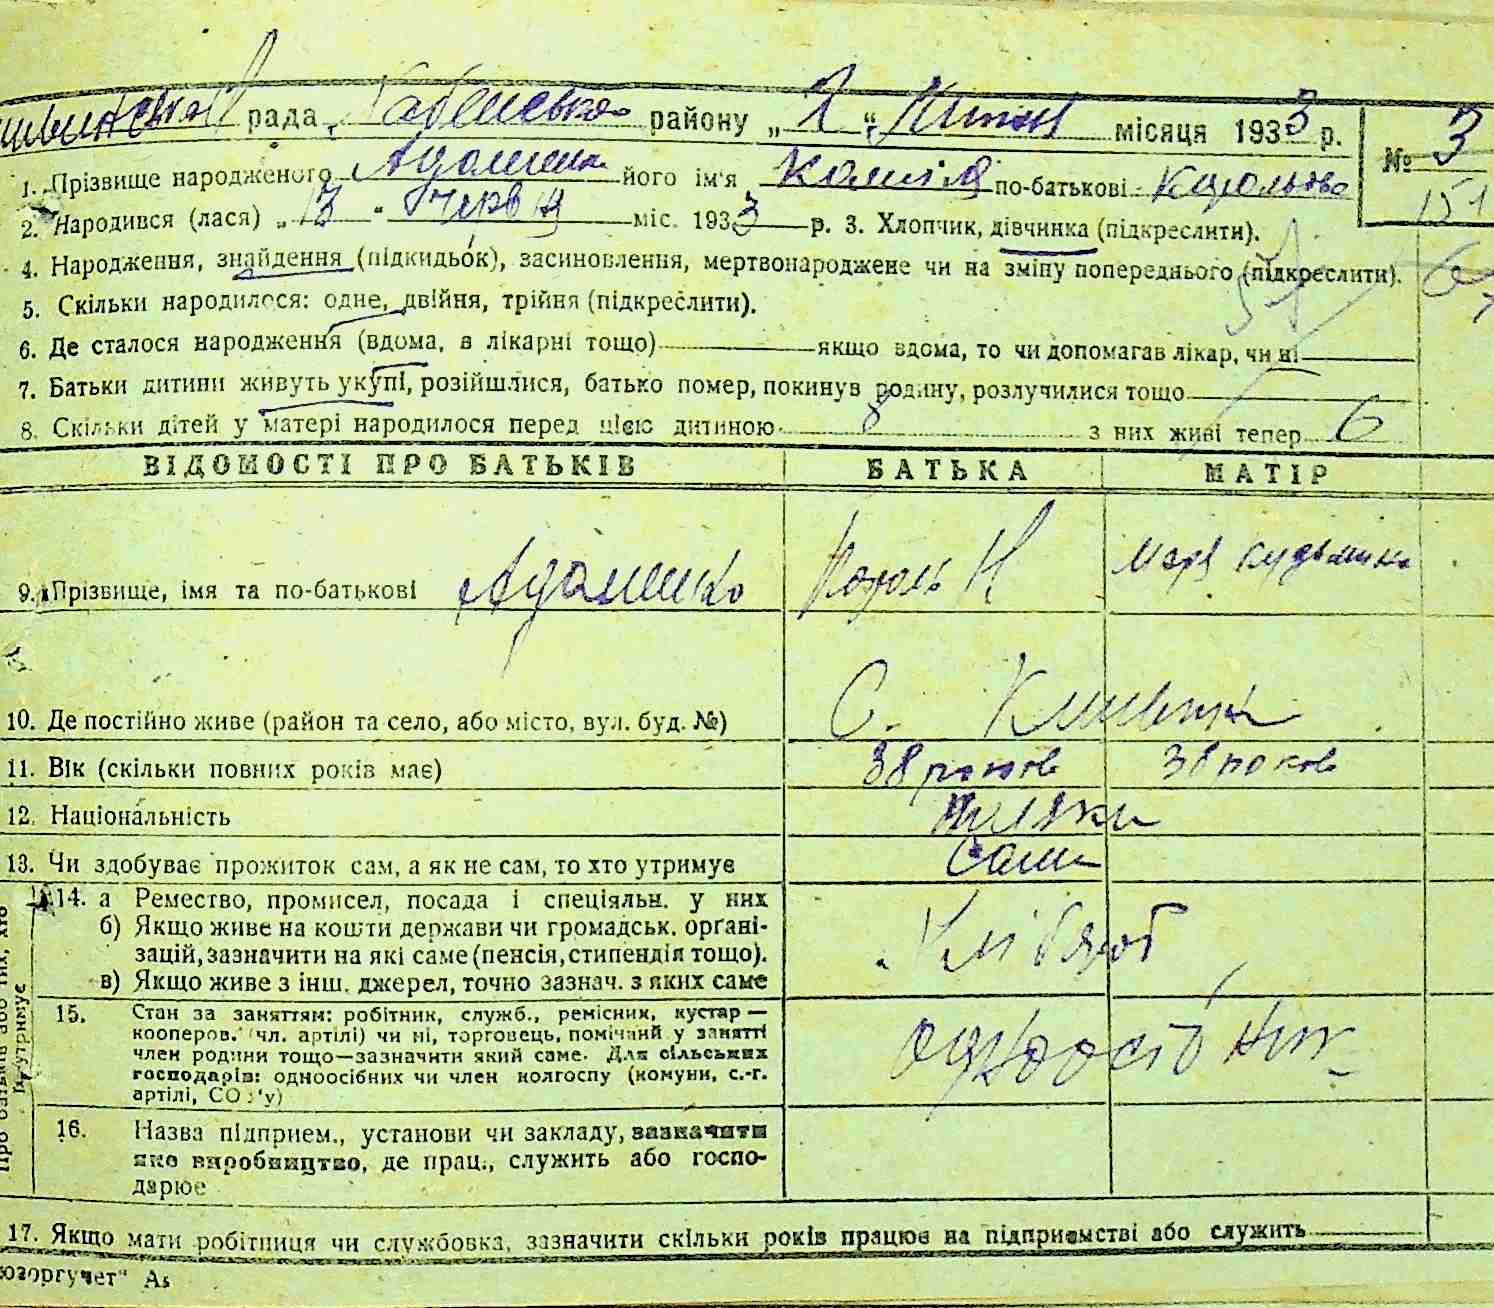 рада Бабенсько району „ 1 “ Липня місяця 1933 р.
№ 3
151
1. Прізвище народженого його ім'я Каміля по-батькові Карольова
2. Народився (лася) „ 13 “ Червня міс. 1933 р. 3. Хлопчик, дівчинка (підкреслити).
4. Народження, знайдення (підкидьок), засиновлення, мертвонароджене чи на зміну попереднього (підкреслити).
5. Скільки народилося: одне, двійня, трійня (підкреслити).
6. Де сталося народження (вдома, в лікарні тощо) якщо вдома, то чи допомагав лікар, чи ні
7. Батьки дитини живуть укупі, розійшлися, батько помер, покинув родину, розлучилися тощо
8. Скільки дітей у матері народилося перед цією дитиною 8 з них живі тепер 6
ВІДОМОСТІ ПРО БАТЬКІВ БАТЬКА МАТІР
9. Прізвище, імя та по-батькові Король Н
10. Де постійно живе (район та село, або місто, вул. буд. №) С.
11. Вік (скільки повних років має) 38 років 38 років
12. Національність поляки
13. Чи здобуває прожиток сам, а як не сам, то хто утримує Сами
14. а Ремество, промисел, посада і спеціяльн. у них
б) Якщо живе на кошти держави чи громадськ. організацій, зазначити на які саме (пенсія, стипендія тощо).
в) Якщо живе з інш. джерел, точно зазнач. з яких саме
Хлібороб
15. Стан за заняттям: робітник, служб., ремісник, кустар—
кооперов. (чл. артілі) чи ні, торговець, помічний у занятті
член родини тощо—зазначити який саме. Для сільських
господарів: одноосібних чи член колгоспу (комуни, с.-г.
артілі, СО
одноосібник
16. Назва підприєм., установи чи закладу, зазначити
яке виробництво, де прац., служить або господарює
17. Якщо мати робітниця чи службовка, зазначити скільки років працює на підприємстві або служить